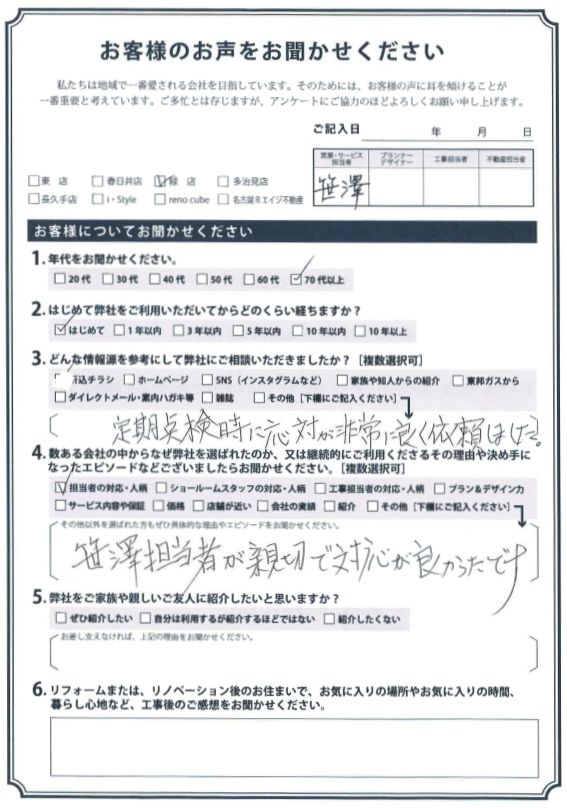 お客様のお声をお聞かせください
私たちは地域で一番愛される会社を目指しています。そのためには、お客様の声に耳を傾けることが
一番重要と考えています。ご多忙とは存じますが、アンケートにご協力のほどよろしくお願い申し上げます。
ご記入日 年 月 日
営業・サービス担当者 プランナーデザイナー 工事担当者 不動産担当者
笹澤
□東 店 □春日井店 ☑緑 店 □多治見店
□長久手店 □i・Style □reno cube □名古屋Rエイジ不動産
お客様についてお聞かせください
1. 年代をお聞かせください。
□20代 □30代 □40代 □50代 □60代 ☑70代以上
2. はじめて弊社をご利用いただいてからどのくらい経ちますか?
☑はじめて □1年以内 □3年以内 □5年以内 □10年以内 □10年以上
3. どんな情報源を参考にして弊社にご相談いただきましたか?[複数選択可]
折込チラシ □ホームページ □SNS(インスタグラムなど) □家族や知人からの紹介 □東邦ガスから
□ダイレクトメール・案内ハガキ等 □雑誌 □その他[下欄にご記入ください]
定期点検時に応対が非常に良く依頼しました。
4. 数ある会社の中からなぜ弊社を選ばれたのか、又は継続的にご利用くださるその理由や決め手に
なったエピソードなどございましたらお聞かせください。[複数選択可]
☑担当者の対応・人柄 □ショールームスタッフの対応・人柄 □工事担当者の対応・人柄 □プラン&デザイン力
□サービス内容や保証 □価格 □店舗が近い □会社の実績 □紹介 □その他[下欄にご記入ください]
その他以外を選ばれた方もぜひ具体的な理由やエピソードをお聞かせください。
笹澤担当者が親切で対応が良かったです
5. 弊社をご家族や親しいご友人に紹介したいと思いますか?
□ぜひ紹介したい □自分は利用するが紹介するほどではない □紹介したくない
お差し支えなければ、上記の理由をお聞かせください。
6. リフォームまたは、リノベーション後のお住まいで、お気に入りの場所やお気に入りの時間、
暮らし心地など、工事後のご感想をお聞かせください。